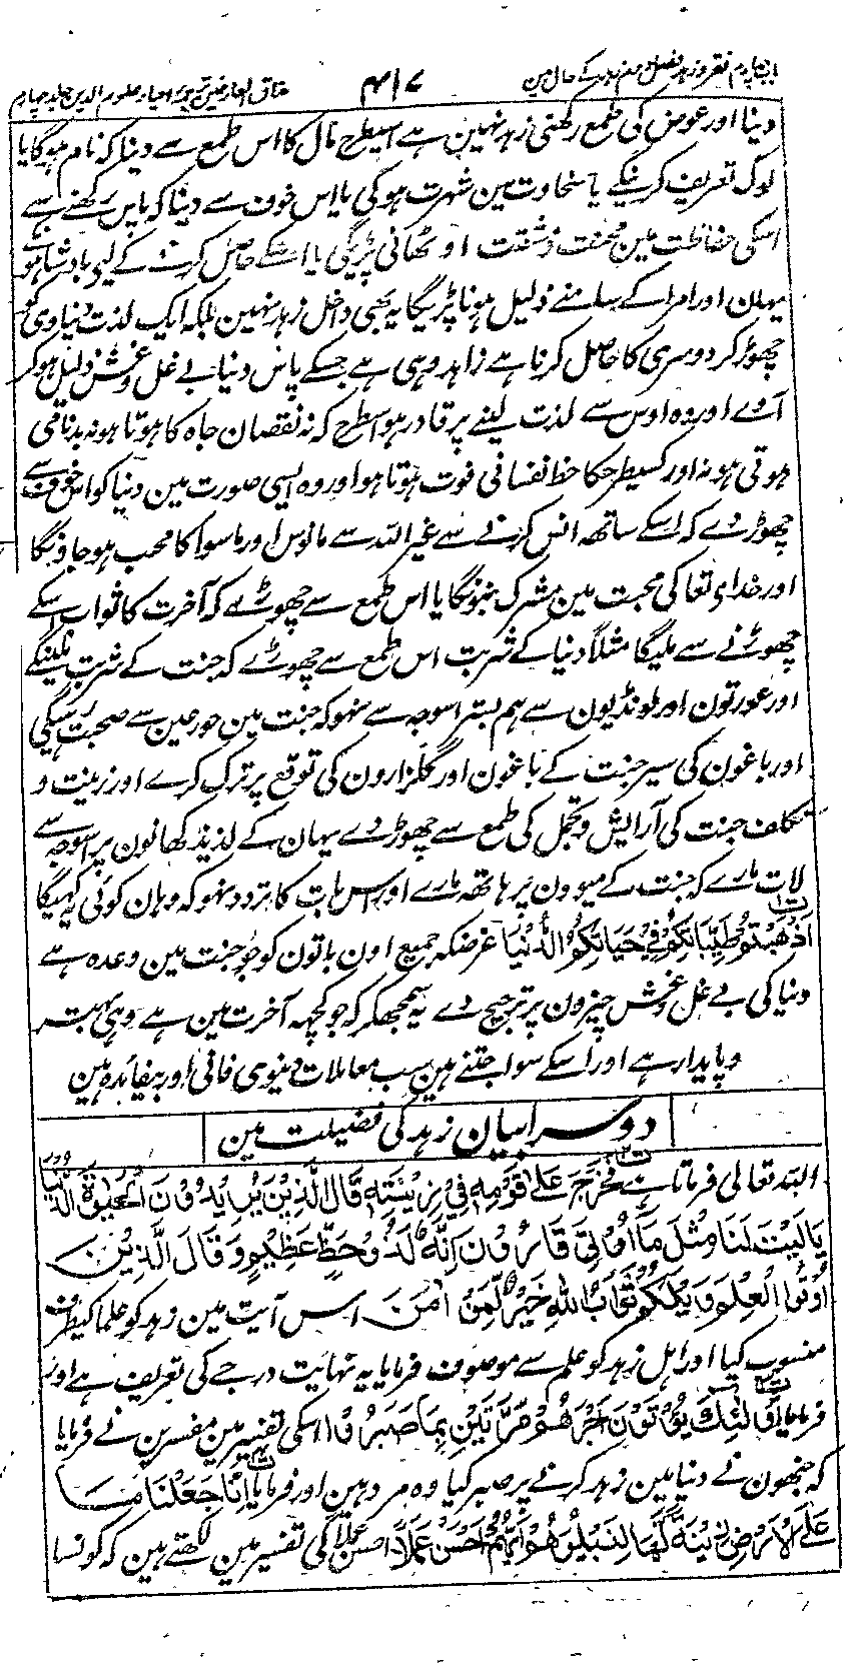 باب چہارم فقر و زہد فصل دوم زہد کے حال مین ۴۱۷ مذاق العارفین ترجمہ احیاء علوم الدین جلد چہارم
دینا اور عوض کی طمع رکھنی زہد نہین ہے اسیطرح مال کا اس طمع سے دینا کہ نام ہوگا یا
لوگ تعریف کرینگے یا سخاوت مین شہرت ہوگی یا اس خوف سے دینا کہ پاس رکھنے سے
اسکی حفاظت مین محنت و مشقت اوٹھانی پڑیگی یا اسکے حاصل کرنے کے لیے بادشاہو
یہان اور امرا کے سامنے ذلیل ہونا پڑیگا یہ بھی داخل زہد نہین بلکہ ایک لذت دنیاوی کو
چھوڑ کر دوسری کا حاصل کرنا ہے زاہد وہی ہے جسکے پاس دنیا بے غل و غش ذلیل ہوکر
آوے اور وہ اوس سے لذت لینے پر قادر ہو اسطرح کہ نہ نقصان جاہ کا ہوتا ہو نہ بدنامی
ہوتی ہو نہ اور کسیطرحکا حظ نفسانی فوت ہوتا ہو اور وہ ایسی صورت مین دنیا کو اس خوف سے
چھوڑ دے کہ اسکے ساتھہ انس کرنے سے غیر اللہ سے مانوس اور ماسوا کا محب ہو جاؤنگا
اور خداے تعالی کی محبت مین مشرک بنونگا یا اس طمع سے چھوڑے کہ آخرت کا ثواب اسکے
چھوڑنے سے ملیگا مثلاً دنیا کے شربت اس طمع سے چھوڑے کہ جنت کے شربت ملینگے
اور عورتون اور لونڈیون سے ہم بستر اسوجہ سے نہو کہ جنت مین حور عین سے صحبت رہیگی
اور باغون کی سیر جنت کے باغون اور گلزارون کی توقع پر ترک کرے اور زینت و
تکلف جنت کی آرایش و تجمل کی طمع سے چھوڑ دے یہان کے لذیذ کھانون پر اسوجہ سے
لات مارے کہ جنت کے میوون پر ہاتھہ مارے اور اس بات کا تردد نہو کہ وہان کوئی یہ کہیگا
اَذْهَبْتُمْ طَيِّبَاتِكُمْ فِيْ حَيَاتِكُمُ الدُّنْيَا غرضکہ جمیع اون باتون کو جو جنت مین وعدہ ہے
دنیا کی بے غل و غش چیزون پر ترجیح دے یہ سمجھکر کہ جو کچھہ آخرت مین ہے وہی بہتر
و پایدار ہے اور اسکے سوا جتنے ہین سب معاملات دنیوی فانی اور بیفائدہ ہین
دوسرا بیان زہد کی فضیلت مین
اللہ تعالی فرماتا ہے فَخَرَجَ عَلٰى قَوْمِهٖ فِيْ زِيْنَتِهٖ قَالَ الَّذِيْنَ يُرِيْدُوْنَ الْحَيٰوةَ الدُّنْيَا
يَا لَيْتَ لَنَا مِثْلَ مَا اُوْتِيَ قَارُوْنُ اِنَّهٗ لَذُوْ حَظٍّ عَظِيْمٍ وَقَالَ الَّذِيْنَ
اُوْتُوا الْعِلْمَ وَيْلَكُمْ ثَوَابُ اللّٰهِ خَيْرٌ لِّمَنْ اٰمَنَ اس آیت مین زہد کو علما کیطرف
منسوب کیا اور اہل زہد کو علم سے موصوف فرمایا یہ نہایت درجے کی تعریف ہے اور
فرمایا اُولٰئِكَ يُؤْتَوْنَ اَجْرَهُمْ مَرَّتَيْنِ بِمَا صَبَرُوْا اسکی تفسیر مین مفسرین نے فرمایا
کہ جنھون نے دنیا مین زہد کرنے پر صبر کیا وہ مراد ہین اور فرمایا اِنَّا جَعَلْنَا مَا
عَلَى الْاَرْضِ زِيْنَةً لَّهَا لِنَبْلُوَهُمْ اَيُّهُمْ اَحْسَنُ عَمَلًا احسن عملا کی تفسیر مین لکھتے ہین کہ کونسا